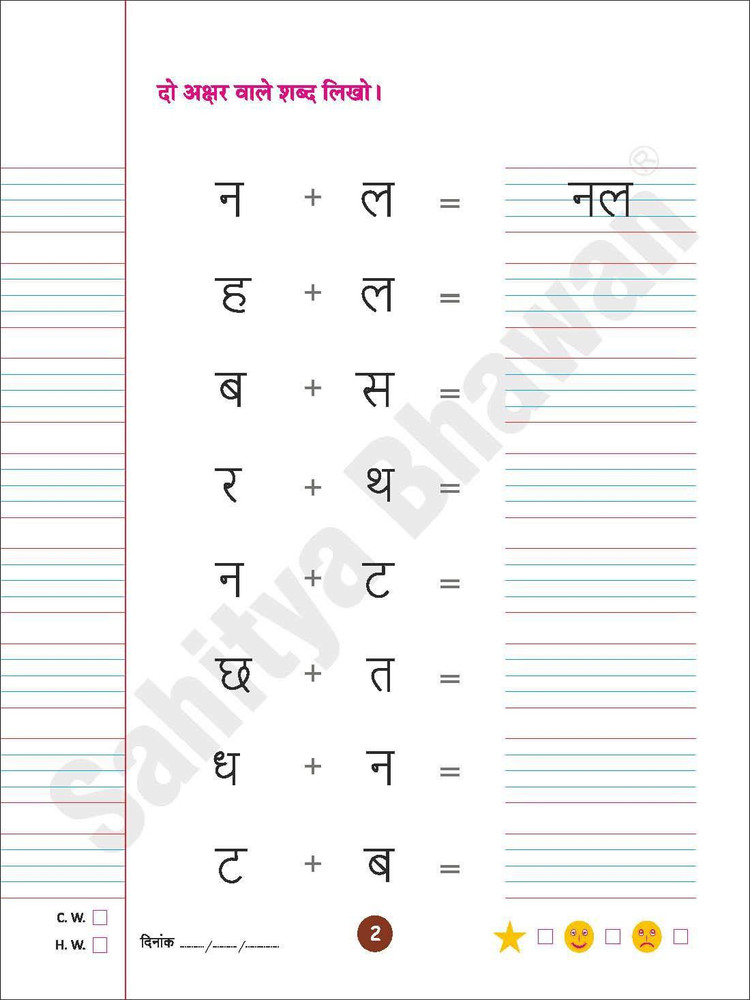 दो अक्षर वाले शब्द लिखो।
®
न + ल = नल
ह + ल =
ब + स =
र + थ =
न + ट =
छ + त =
ध + न =
ट + ब =
Sahitya Bhawan
C. W.
H. W.
दिनांक ......../......../...........
2